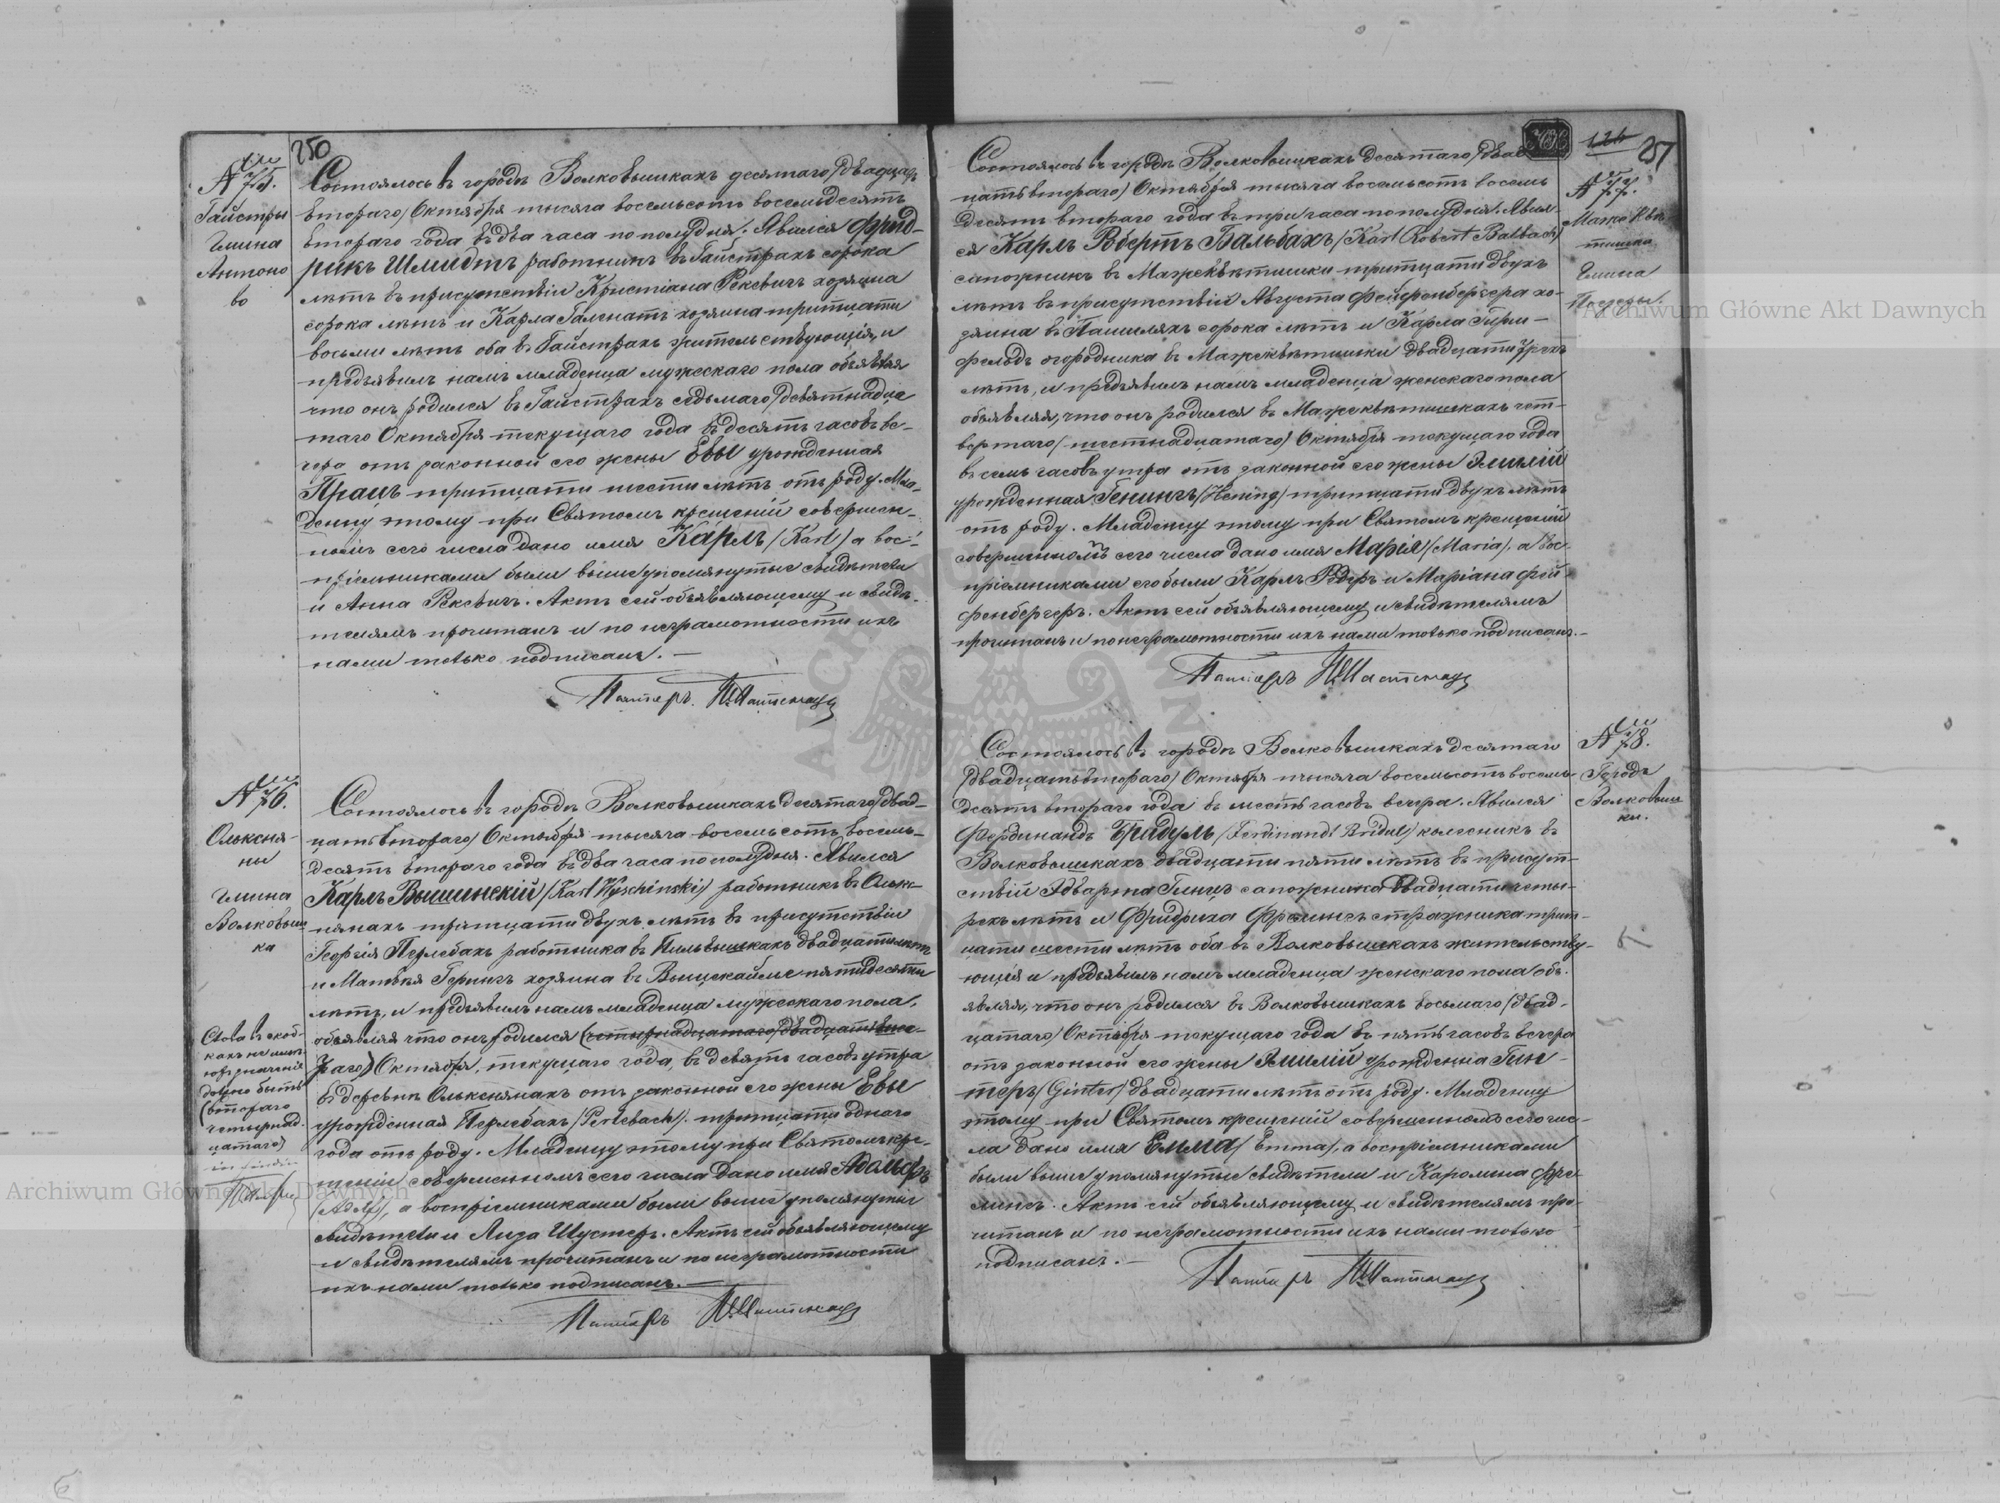 250
№ 75.
Гайстры
Гмина
Антоно
во
Состоялось въ городѣ Волковышкахъ десятаго /двадцать
втораго/ Октября тысяча восемьсотъ восемьдесятъ
втораго года въ два часа по полудня. Явился Фрид-
рикъ Шмидтъ работникъ въ Гайстрахъ сорока
лѣтъ въ присутствіи Христіана Рекевичъ хозяина
сорока лѣтъ и Карла Галинатъ хозяина тритцати
восьми лѣтъ оба въ Гайстрахъ жительствующія, и
предъявилъ намъ младенца мужескаго пола объявляя
что онъ родился въ Гайстрахъ седьмаго /девятнадца
таго Октября текущаго года въ десять часовъ ве-
чера отъ законной его жены Евы урожденная
Працъ тритцати шести лѣтъ отъ роду. Мла-
денцу этому при Святомъ крещеніи совершен-
номъ сего числа дано имя Карлъ /Karl/ а вос-
пріемниками были выше упомянутые свидѣтели
и Анна Рекевичъ. Актъ сей объявляющему и свидѣ-
телямъ прочитанъ и по неграмотности ихъ
нами только подписанъ. —
Пасторъ
№ 76.
Ольксня-
ны
Гмина
Волковыш
ки
Слова въ скоб-
кахъ не имѣ-
ютъ значенія
должно быть
(втораго
четырнад-
цатаго)
Состоялось въ городѣ Волковышкахъ десятаго /двад-
цать втораго/ Октября тысяча восемьсотъ восемь-
десятъ втораго года въ два часа по полудня. Явился
Карлъ Вышинскій /Karl Wyschinski/ работникъ въ Ольк-
нянахъ тритцати двухъ лѣтъ въ присутствіи
Георгія Перлебахъ работника въ Пильвышкахъ двадцати лѣтъ
и Матвѣя Герингъ хозяина въ пятидесяти
лѣтъ, и предъявилъ намъ младенца мужескаго пола,
объявляя что онъ родился (четырнадцатаго /двадцать шес-
таго) Октября, текущаго года въ девять часовъ утра
въ деревнѣ Олькснянахъ отъ законной его жены Евы
урожденная Перлебахъ /Perlebach/. тритцати одного
года отъ роду. Младенцу этому при Святомъ кре-
щеніи совершенномъ сего числа дано имя Адольфъ
/Adolf/, а воспріемниками были выше упомянутые
свидѣтели и Лиза Шустеръ. Актъ сей объявляющему
и свидѣтелямъ прочитанъ и по неграмотности
ихъ нами только подписанъ. —
Пасторъ
126 251
№ 77.
Гмина
Состоялось въ городѣ Волковышкахъ десятаго /двад
цать втораго/ Октября тысяча восемьсотъ восемь
десятъ втораго года въ три часа по полудня. Явил-
ся Карлъ Робертъ Бальбахъ /Karl Robert Balbach/
сапожникъ въ Мажеквѣтишки тритцати двухъ
лѣтъ въ присутствіи Августа Фейфенбергера хо-
зяина въ сорока лѣтъ и Карла
огородника въ Мажеквѣтишки двадцати трехъ
лѣтъ, и предъявилъ намъ младенца женскаго пола
объявляя, что онъ родился въ Мажеквѣтишкахъ чет-
вертаго /шестнадцатаго/ Октября текущаго года
въ семь часовъ утра отъ законной его жены Эмиліи
урожденная Генингъ /Hening/ тритцати двухъ лѣтъ
отъ роду. Младенцу этому при Святомъ крещеніи
совершенномъ сего числа дано имя Марія /Maria/, а вос-
пріемниками его были Карлъ и Маріана Фей-
фенбергеръ. Актъ сей объявляющему и свидѣтелямъ
прочитанъ и по неграмотности ихъ нами только подписанъ. —
Пасторъ
№ 78.
Городъ
Волковыш
ки.
Состоялось въ городѣ Волковышкахъ десятаго
/двадцать втораго/ Октября тысяча восемьсотъ восемь-
десятъ втораго года въ шесть часовъ вечера. Явился
Фердинандъ Бридуль /Ferdinandt Bridul/ колесникъ въ
Волковышкахъ двадцати пяти лѣтъ въ присут-
ствіи Эдварта Гинцъ сапожника двадцати четы-
рехъ лѣтъ и Фридриха стражника трит-
цати шести лѣтъ оба въ Волковышкахъ жительству-
ющія и предъявилъ намъ младенца женскаго пола объ-
являя, что онъ родился въ Волковышкахъ восьмаго /двад-
цатаго/ Октября текущаго года въ пять часовъ вечера
отъ законной его жены Эмиліи урожденна Гин-
теръ /Günter/ двадцати лѣтъ отъ роду. Младенцу
этому при Святомъ крещеніи совершенномъ сего чис-
ла дано имя Емма /Emma/, а воспріемниками
были выше упомянутые свидѣтели и Каролина
Актъ сей объявляющему и свидѣтелямъ про-
читанъ и по неграмотности ихъ нами только
подписанъ. —
Пасторъ
Archiwum Główne Akt Dawnych
Archiwum Główne Akt Dawnych